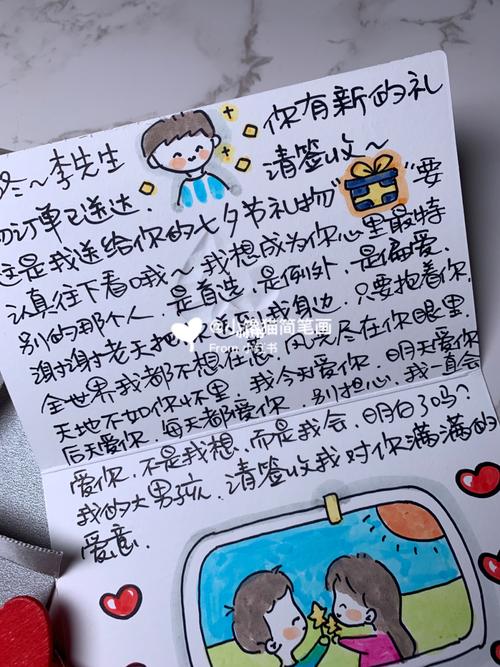 咚~李先生
你有新的礼
的订单已送达.
请签收~
这是我送给你的“七夕节礼物”要
认真往下看哦~我想成为你心里最特
别的那个人.是首选.是例外.是偏爱.
谢谢老天把你 我身边.只要抱着你.
全世界我都不想在意.风光尽在你眼里.
天地不如你怀里.我今天爱你.明天爱你
后天爱你.每天都爱你.别担心.我一直会
爱你.不是我想.而是我会.明白了吗?
我的大男孩.请签收我对你满满的
爱意.
@小馋猫简笔画
From 小红书